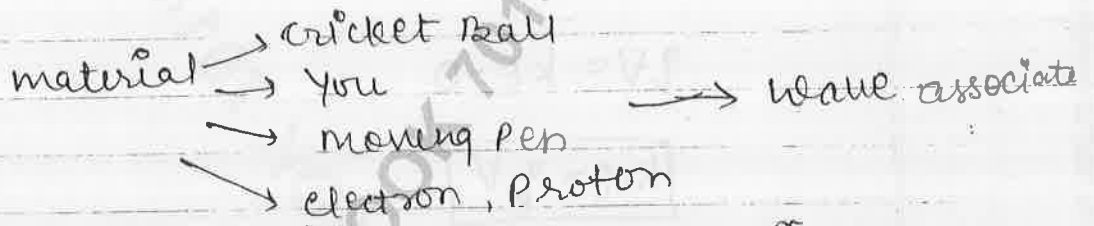 material → cricket Ball
→ You → wave associate
→ moving Pen
→ electron, Proton